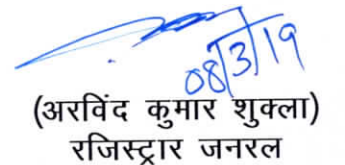 08/3/19
(अरविंद कुमार शुक्ला)
रजिस्ट्रार जनरल